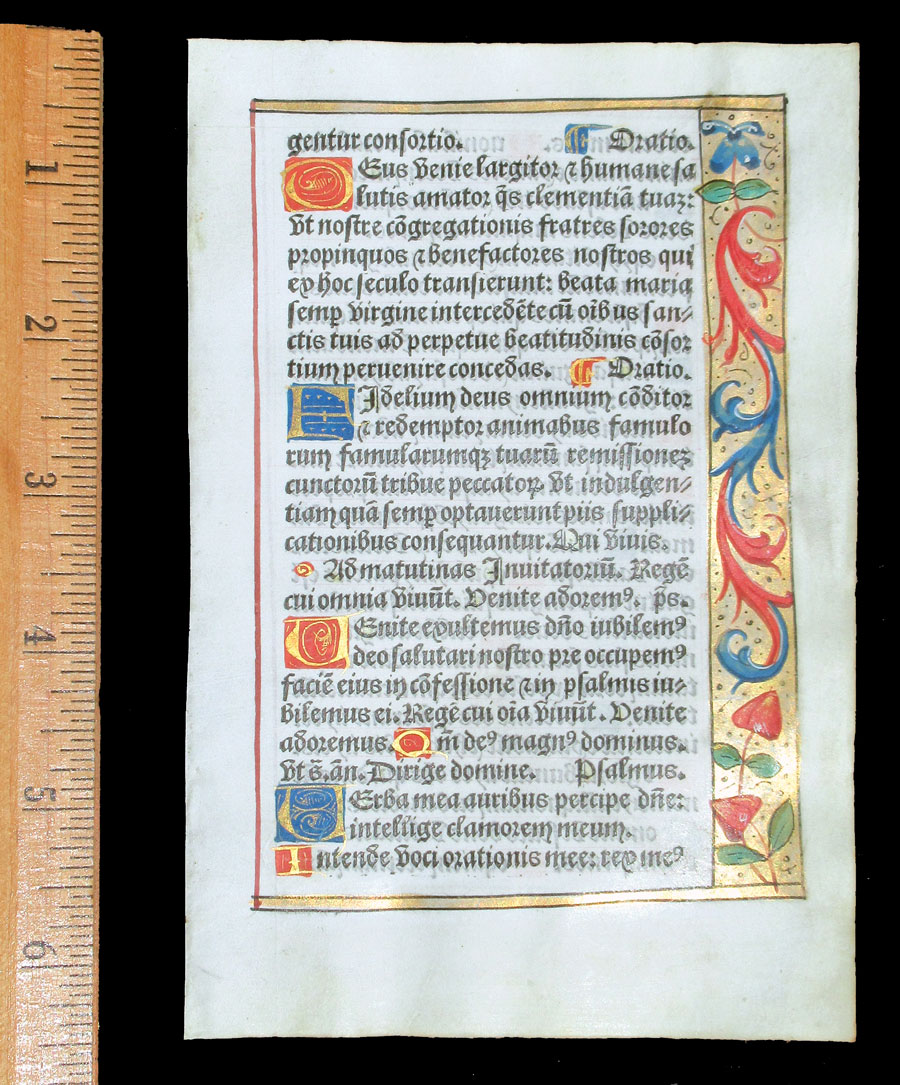 gentur consortio. Oratio.
DEus venie largitor ⁊ humane sa
lutis amator q̄s clementiā tuaꝫ:
vt nostre cōgregationis fratres sorores
propinquos ⁊ benefactores nostros qui
ex hoc seculo transierunt: beata maria
semꝑ virgine intercedēte cū oībus san⸗
ctis tuis ad perpetue beatitudinis cōsor
tium peruenire concedas. Oratio.
FIdelium deus omnium cōditor
⁊ redemptor animabus famulo
rum famularumqꝫ tuarū remissioneꝫ
cunctorū tribue peccatoꝝ. vt indulgen⸗
tiam quā semꝑ optauerunt piis suppli⸗
cationibus consequantur. Qui viuis.
Ad matutinas Inuitatoriū. Regē
cui omnia viuūt. Venite adoremꝰ. p̄s.
VEnite exultemus dn̄o iubilemꝰ
deo salutari nostro pre occupemꝰ
faciē eius in cōfessione ⁊ in psalmis iu⸗
bilemus ei. Regē cui oīa viuūt. Venite
adoremus. Qm̄ deꝰ magnꝰ dominus.
vt s̄. an̄. Dirige domine. Psalmus.
VErba mea auribus percipe dn̄e:
intellige clamorem meum.
Intende voci orationis mee: rex meꝰ
1
2
3
4
5
6